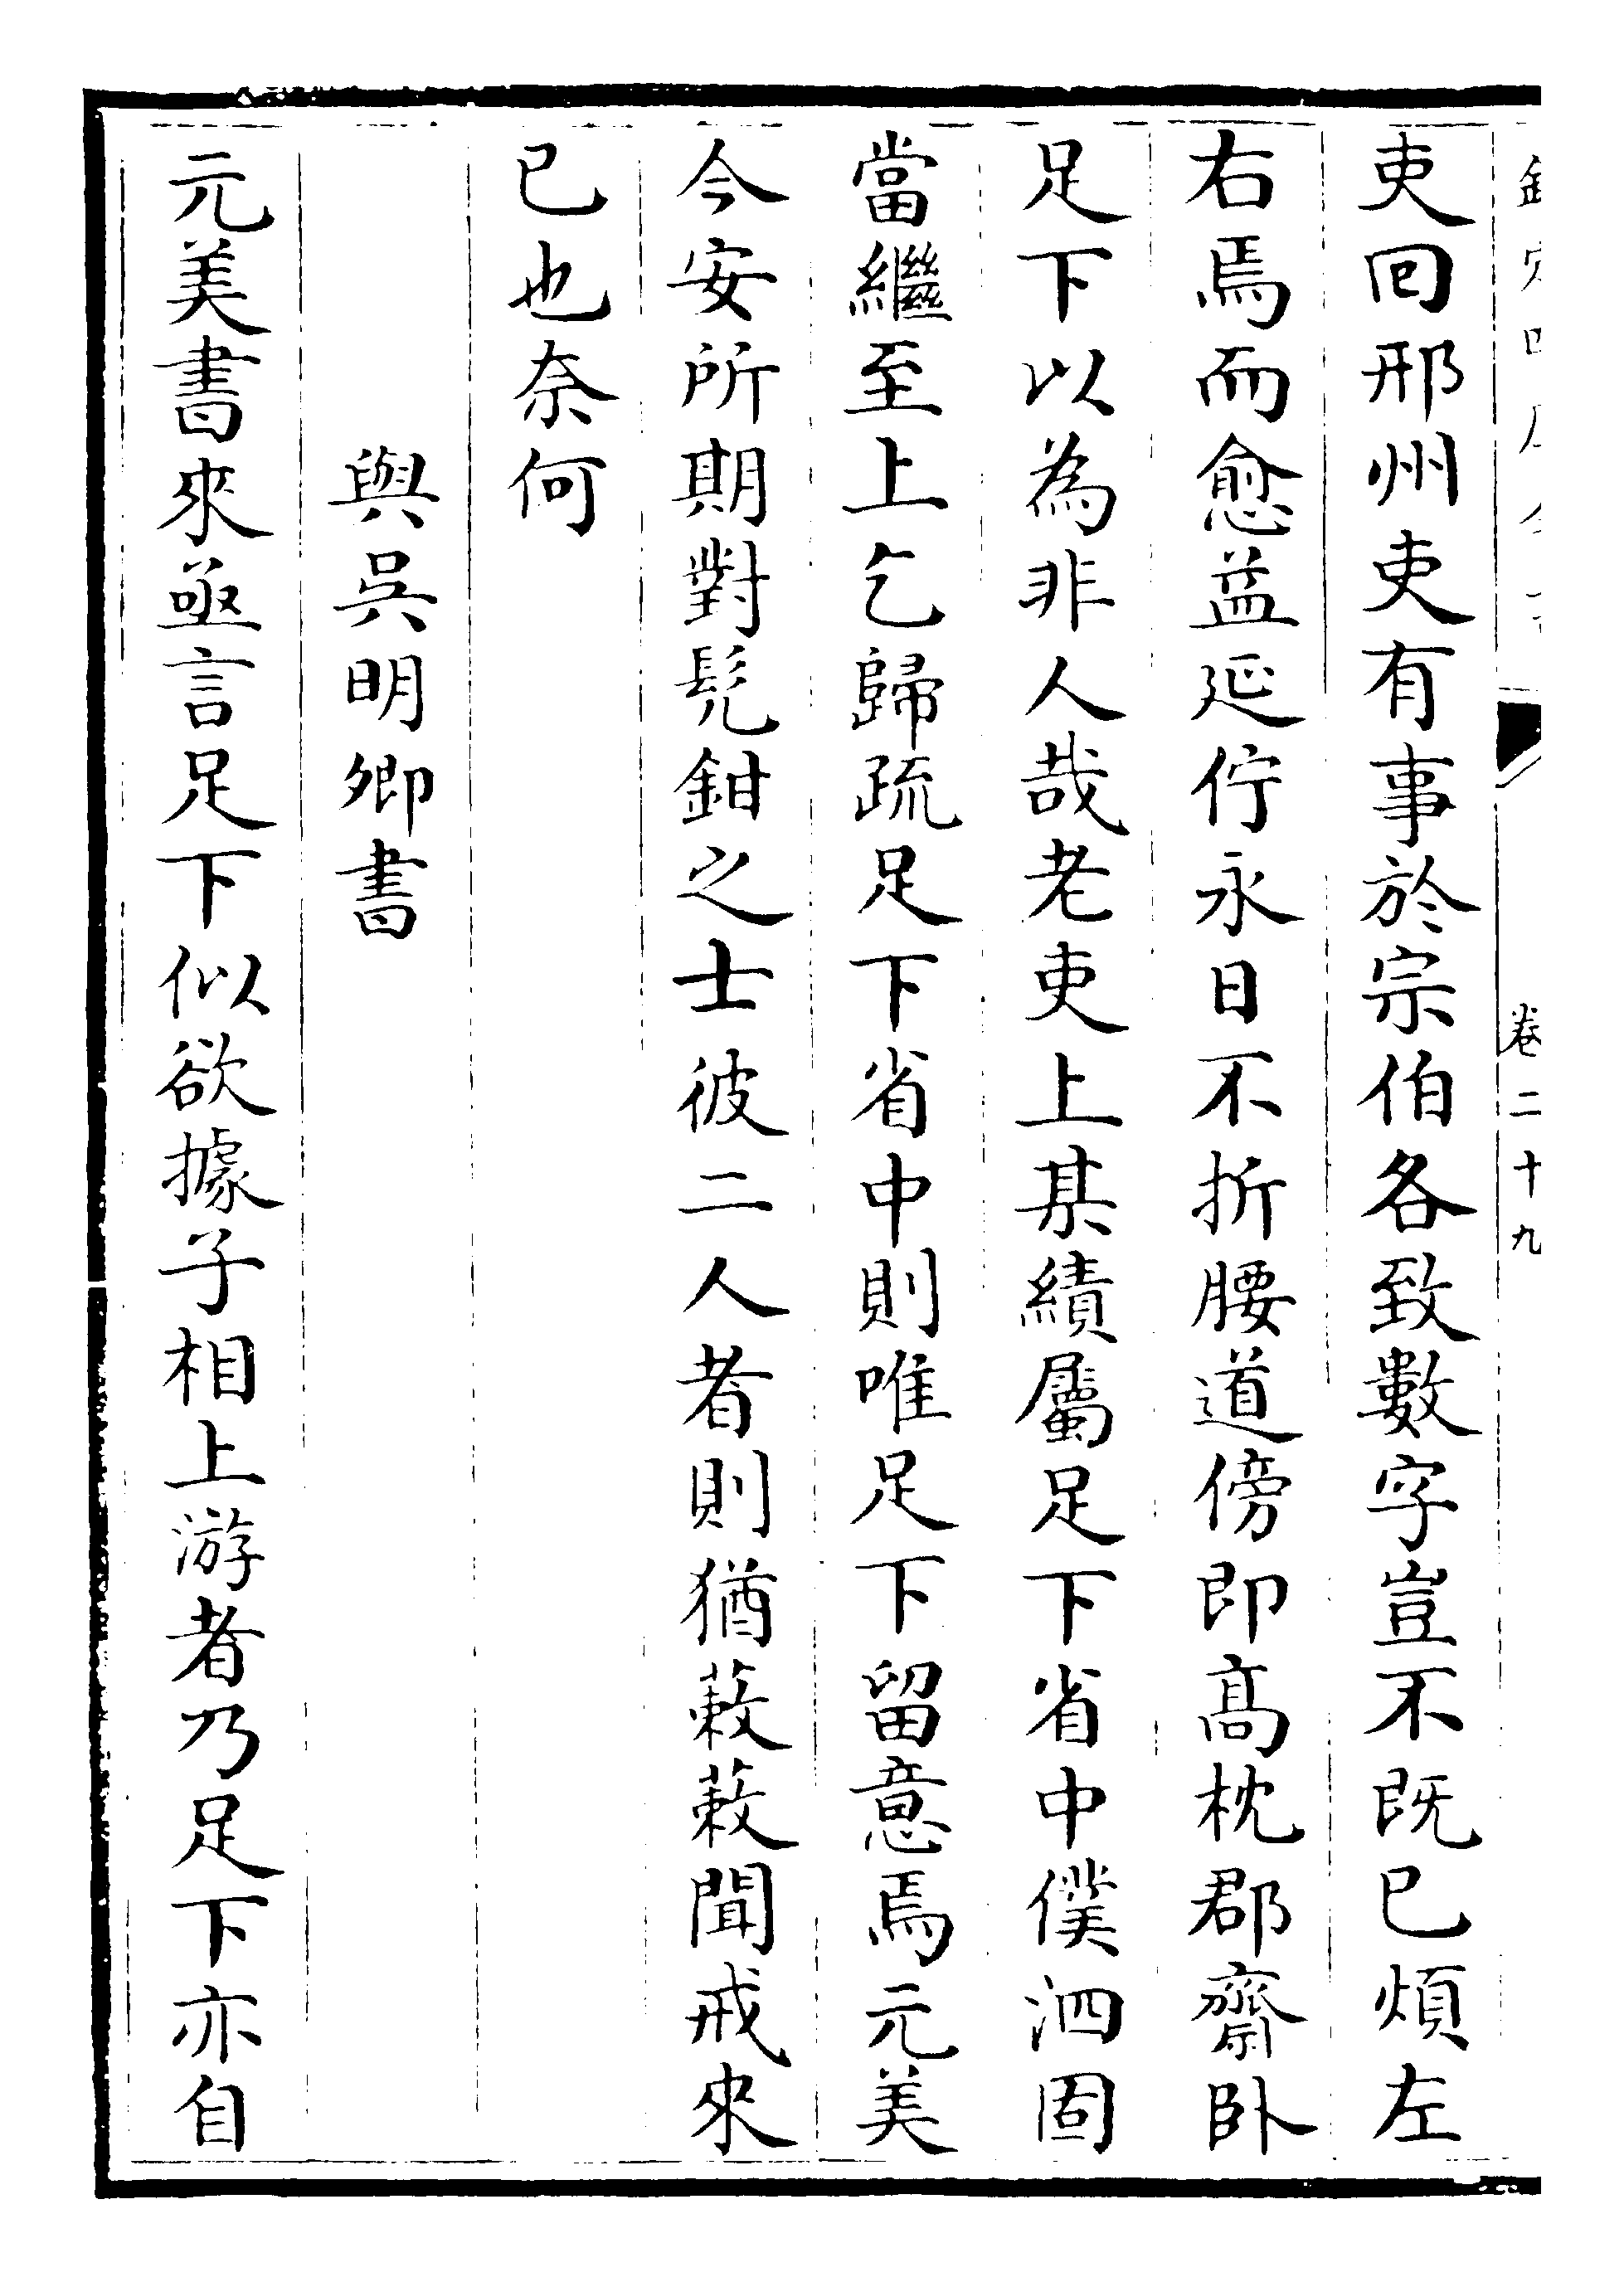 卷二十九
吏回邢州吏有事於宗伯各致數字豈不既已煩左
右焉而愈益延佇永日不折腰道傍即高枕郡齋卧
足下以為非人哉老吏上某績屬足下省中僕泗固
當繼至上乞歸疏足下省中則唯足下留意焉元美
今安所期對髡鉗之士彼二人者則猶蔌蔌聞戒來
已也奈何
與吳明卿書
元美書來亟言足下似欲據子相上游者乃足下亦自